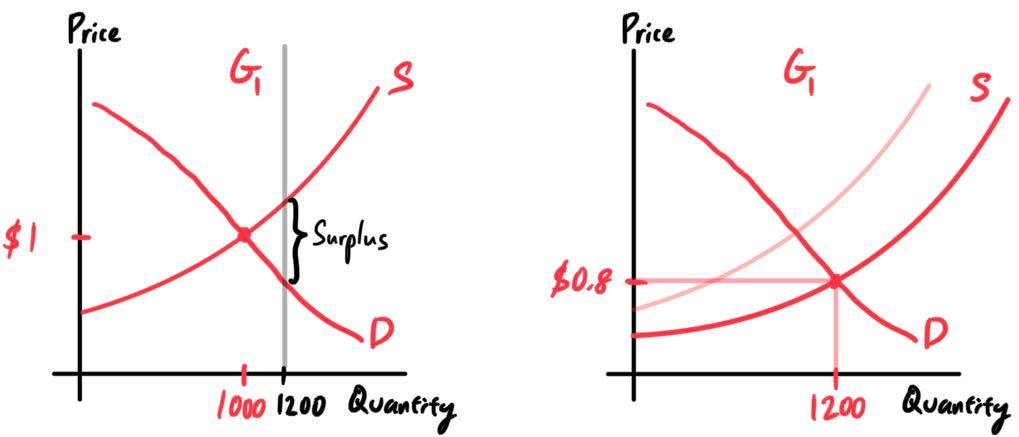 Price
G1
S
$1
Surplus
D
1000
1200
Quantity
Price
G1
S
$0.8
D
1200
Quantity